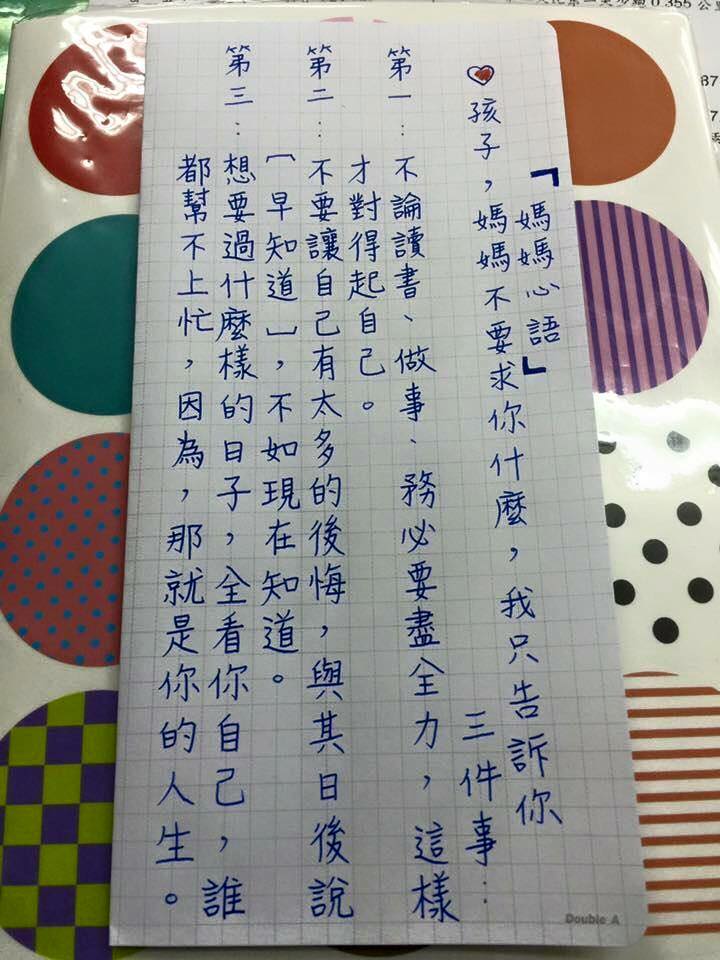 「媽媽心語」
孩子,媽媽不要求你什麼,我只告訴你
三件事:
第一:不論讀書、做事、務必要盡全力,這樣
才對得起自己。
第二:不要讓自己有太多的後悔,與其日後說
〔早知道〕,不如現在知道。
第三:想要過什麼樣的日子,全看你自己,誰
都幫不上忙,因為,那就是你的人生。
Double A
0.355 公里
87